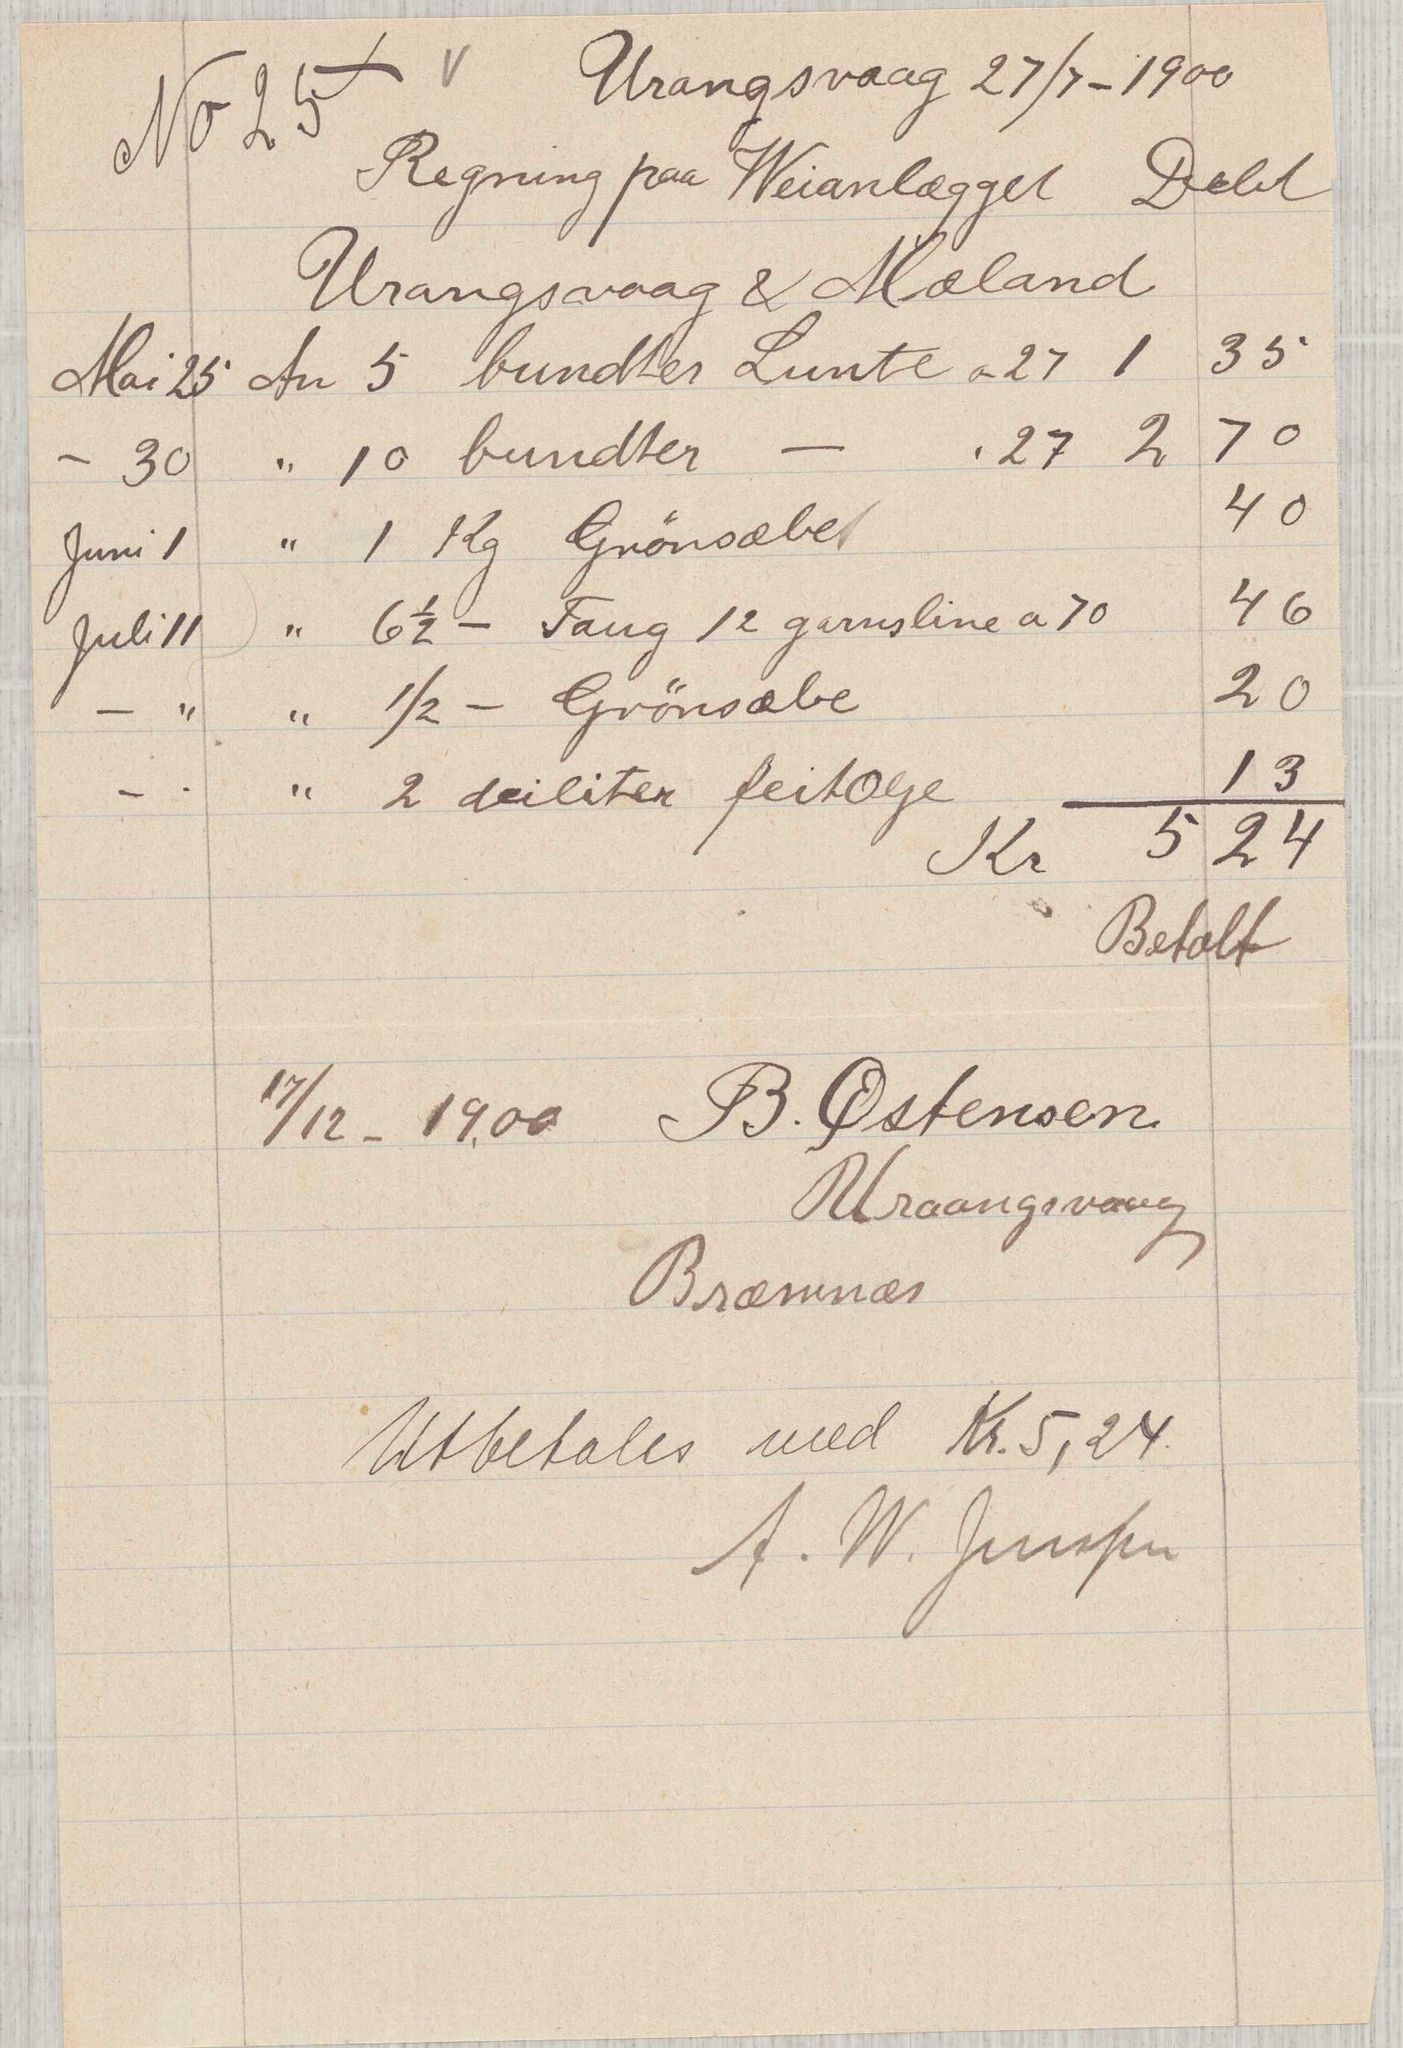 No 25 V Urangsvaag 27/7 - 1900
Regning paa Weianlægget Debet
Urangsvaag & Mæland
Mai 25 An 5 bundter Lunte a 27 1 35
- 30 " 10 bundter — " 27 2 70
Juni 1 " 1 Kg Grönsæbe 40
Juli 11 " 6½ - Faug 12 garnsline a 70 46
- " " 1/2 - Grönsæbe 20
- " " 2 deiliter feitolje 13
Kr 5 24
Betalt
17/12 - 1900 B. Østensen
Uraangsvaag
Bræmnæs
Utbetales med Kr. 5,24.
A. W.